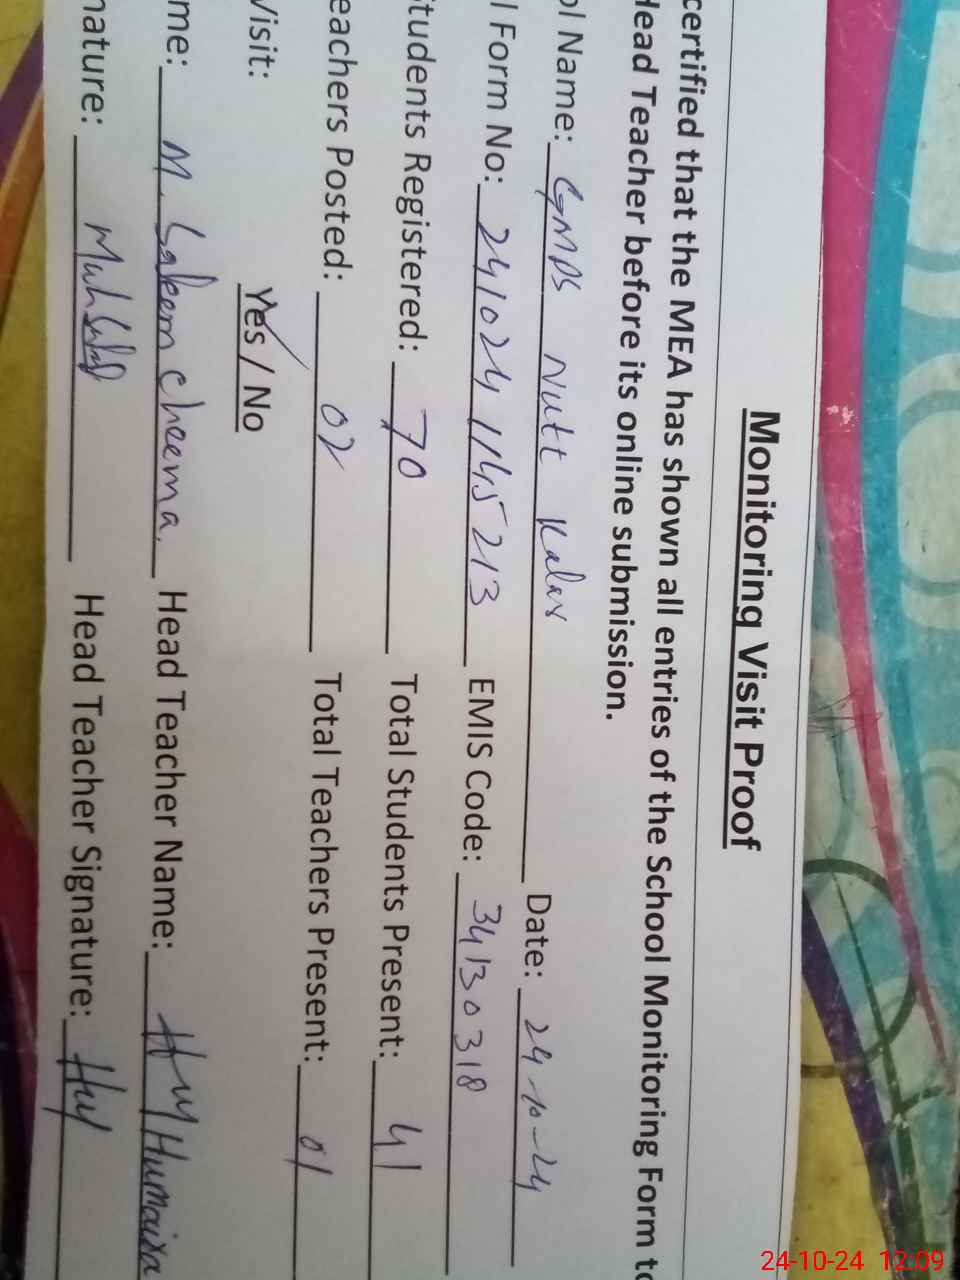 Monitoring Visit Proof
certified that the MEA has shown all entries of the School Monitoring Form to
Head Teacher before its online submission.
ol Name: GMPS Nutt Kalar Date: 24-10-24
l Form No: 241024 1145213 EMIS Code: 34130318
Students Registered: 70 Total Students Present: 41
eachers Posted: 02 Total Teachers Present: 01
Visit: Yes / No
me: M. Saleem cheema. Head Teacher Name: Humaira
nature: Head Teacher Signature:
24-10-24 12:09